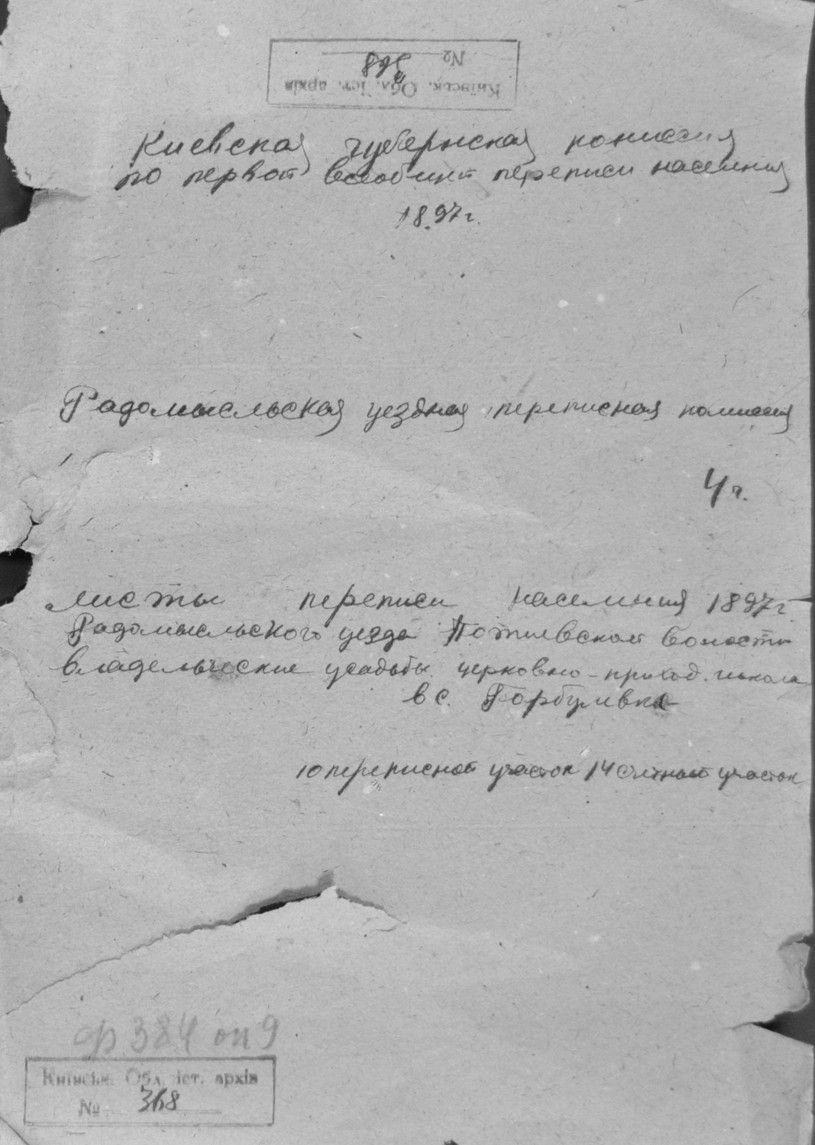 Київськ. Обл. іст. архів
№ 368
Киевская губернская комиссия
по первой всеобщей переписи населения
1897 г.
Радомысльская уездная переписная комиссия
4 ч.
Листы переписи населения 1897 г.
Радомысльского уезда Потиевской волости
владельческие усадьбы церковно-приход. школа
в с. Горбулевка
10 переписной участок 14 счетной участок
ф 384 оп 9
Київськ. Обл. іст. архів
№ 368